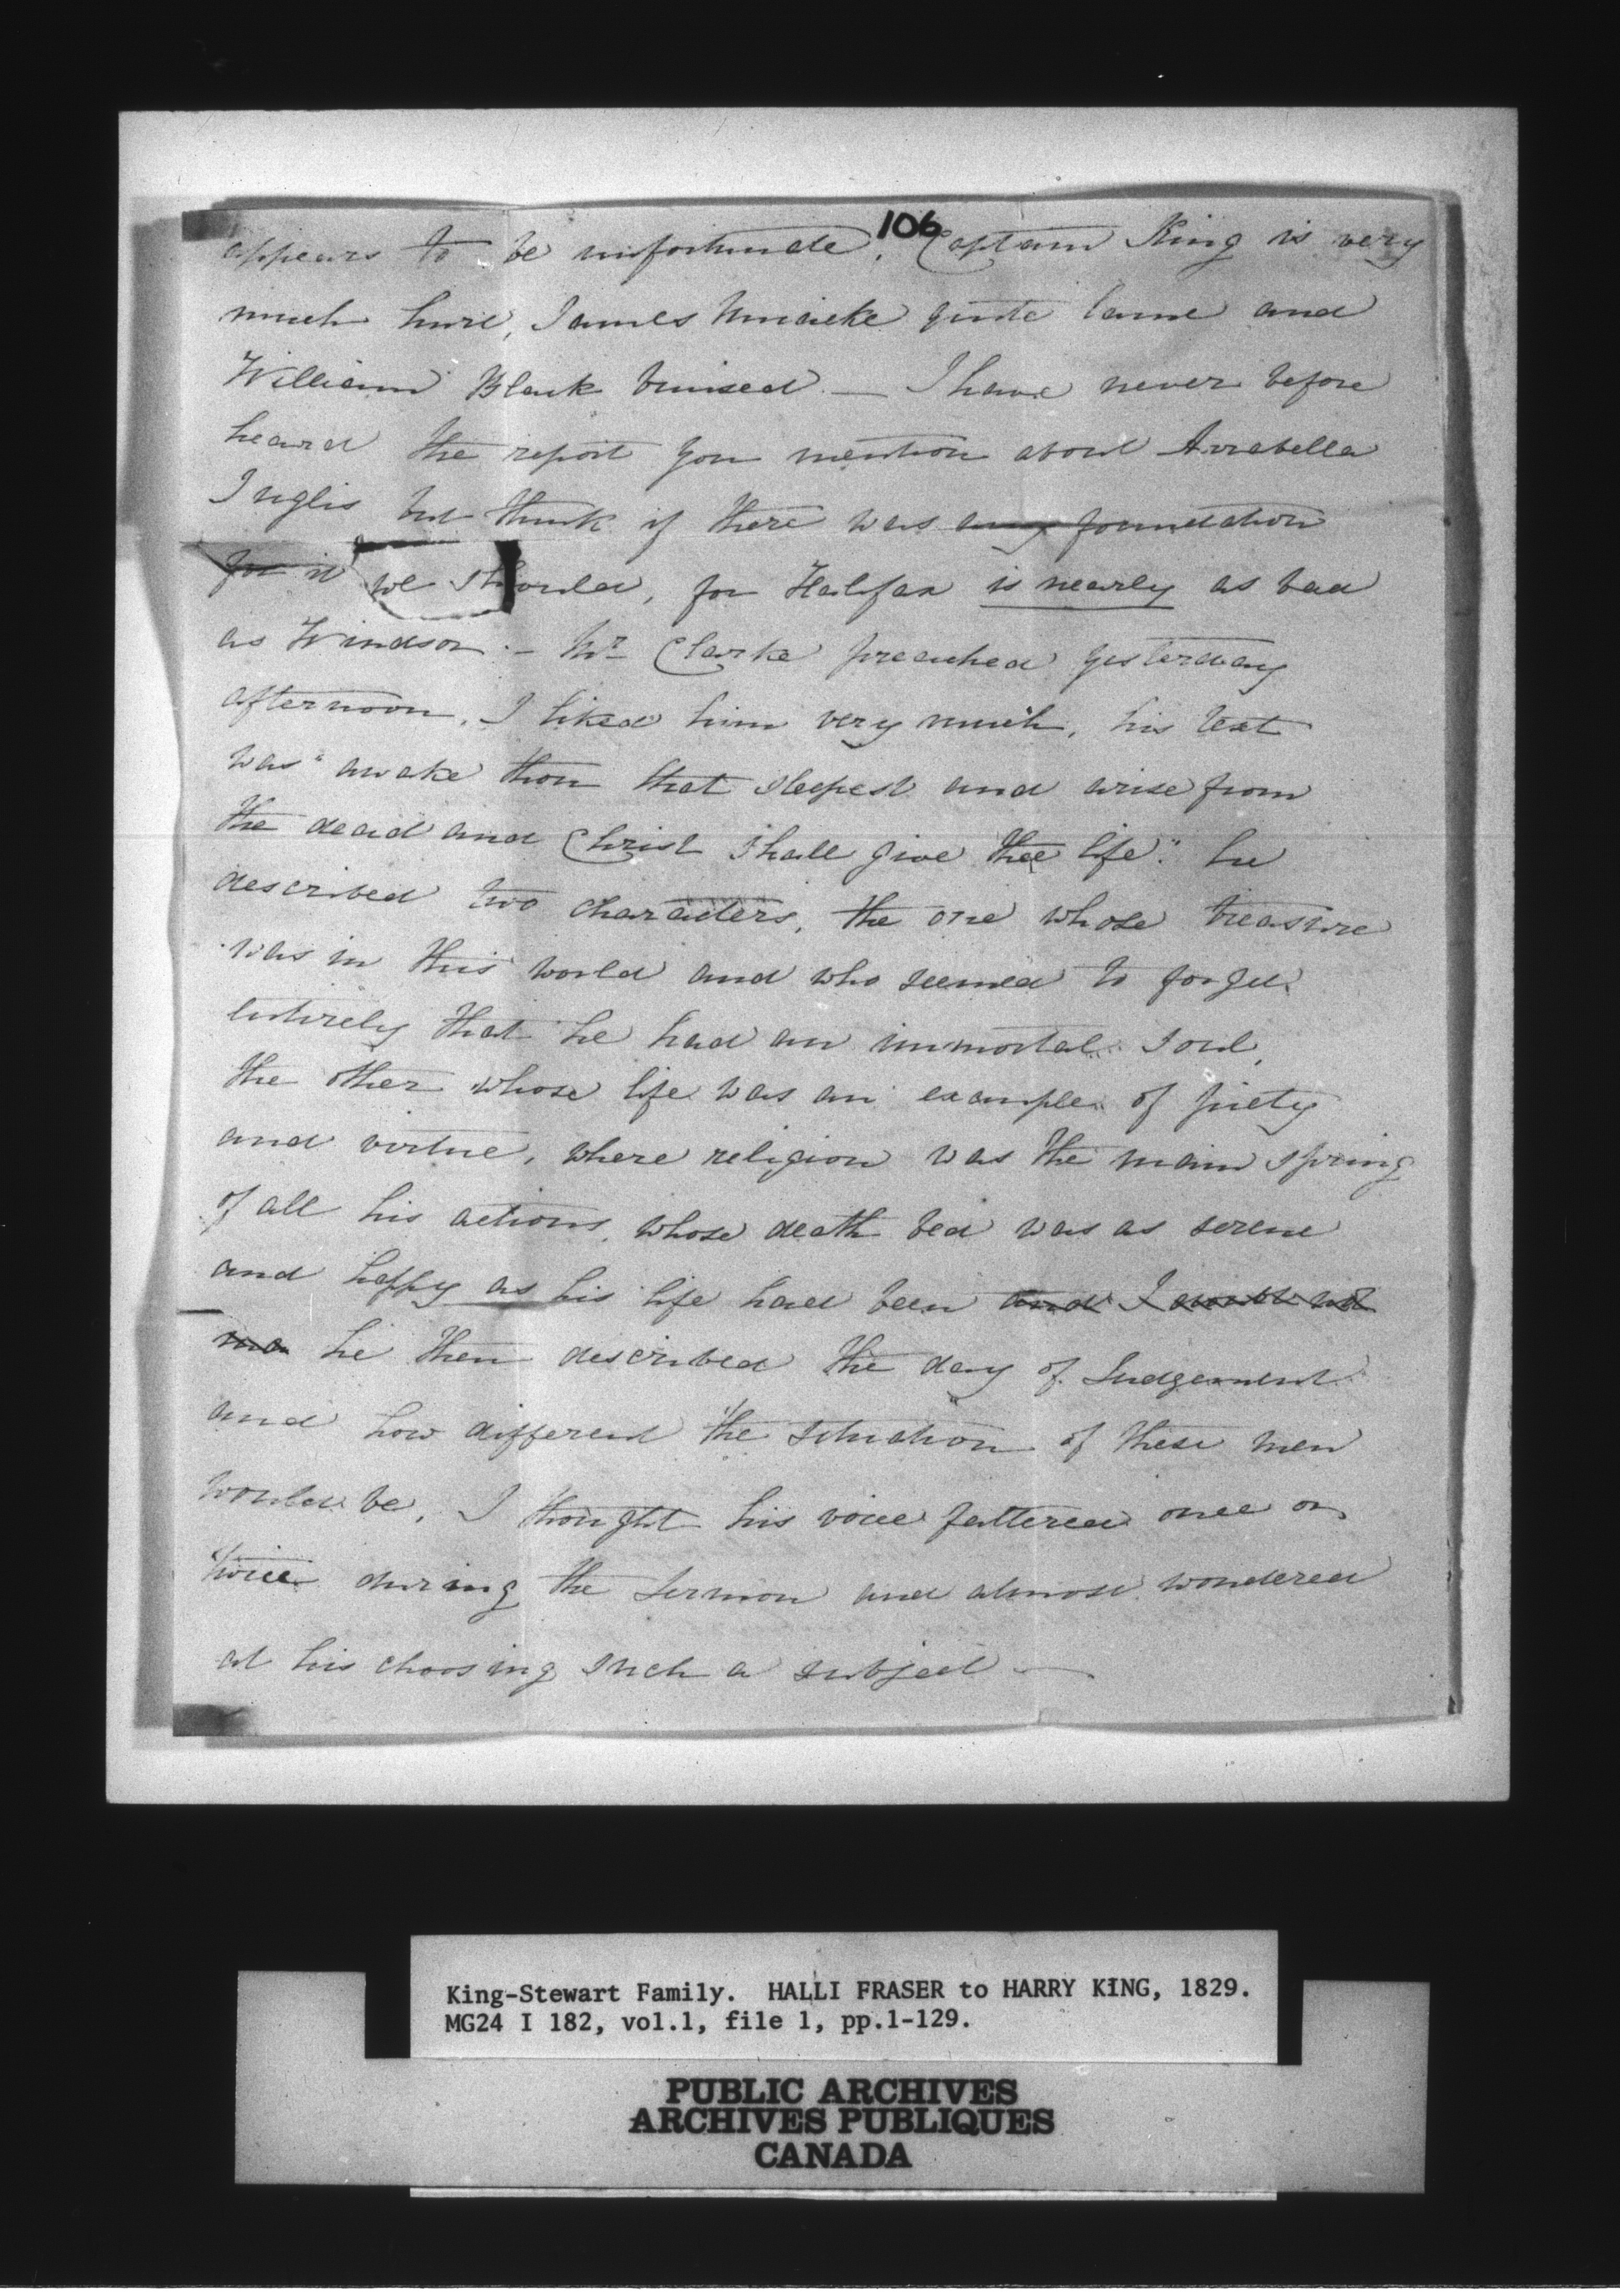 106
appears to be unfortunate, Captain King is very
much hurt, James Uniacke quite lame and
William Black bruised — I have never before
heard the report you mention about Arrabella
Inglis but think if there was any foundation
for it we should, for Halifax is nearly as bad
as Windsor. — Mr Clarke preached yesterday
afternoon, I liked him very much, his text
was "awake thou that sleepest and arise from
the dead and Christ shall give thee life." he
described two characters, the one whose treasure
was in this world and who seemed to forget
entirely that he had an immortal soul,
the other whose life was an example of piety
and virtue, where religion was the main spring
of all his actions, whose death bed was as serene
and happy as his life had been and I
he then described the day of Judgement
and how different the situation of these men
would be, I thought his voice faltered once or
twice during the sermon and almost wondered
at his choosing such a subject —
King-Stewart Family. HALLI FRASER to HARRY KING, 1829.
MG24 I 182, vol.1, file 1, pp.1-129.
PUBLIC ARCHIVES
ARCHIVES PUBLIQUES
CANADA